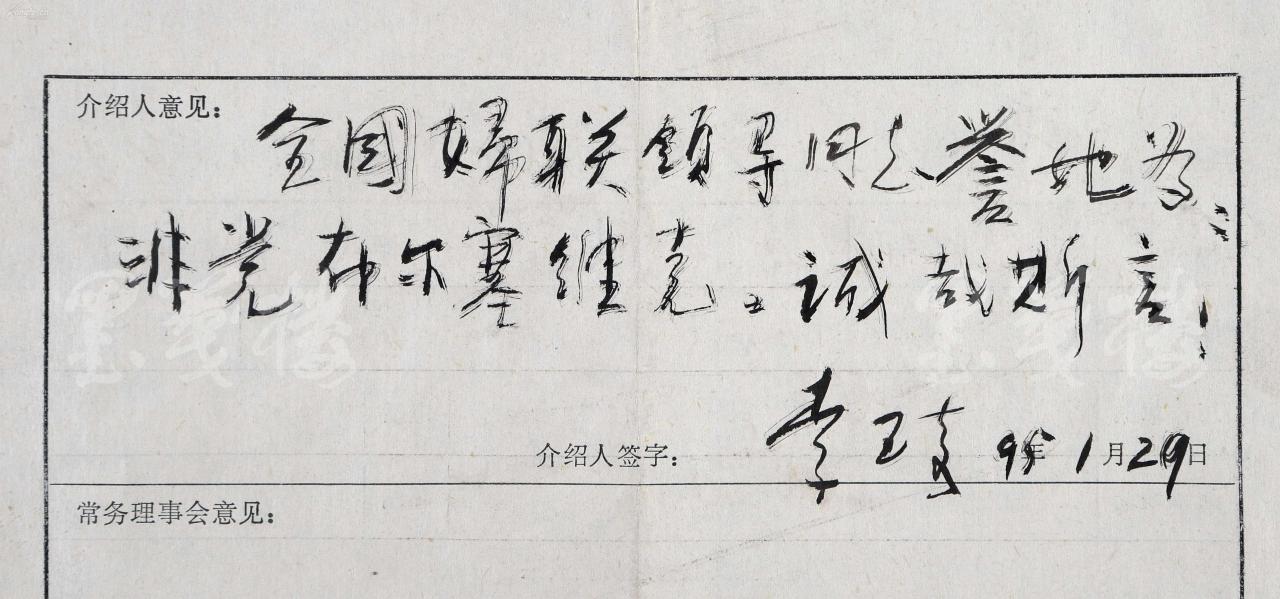 介绍人意见:
全國婦联領导同志誉她为:
非党布尔塞维克。诚哉斯言!
介绍人签字: 李琦 95年1月29日
常务理事会意见:
墨笺楼
墨笺楼